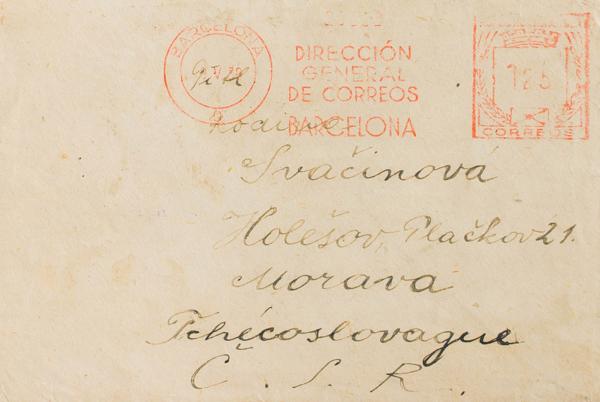 BARCELONA
DIRECCIÓN
GENERAL
DE CORREOS
BARCELONA
CORREOS
Rodina
Svačinová
Holešov, Plačkov 21.
Morava
Tchécoslovaque
Č. S. R.